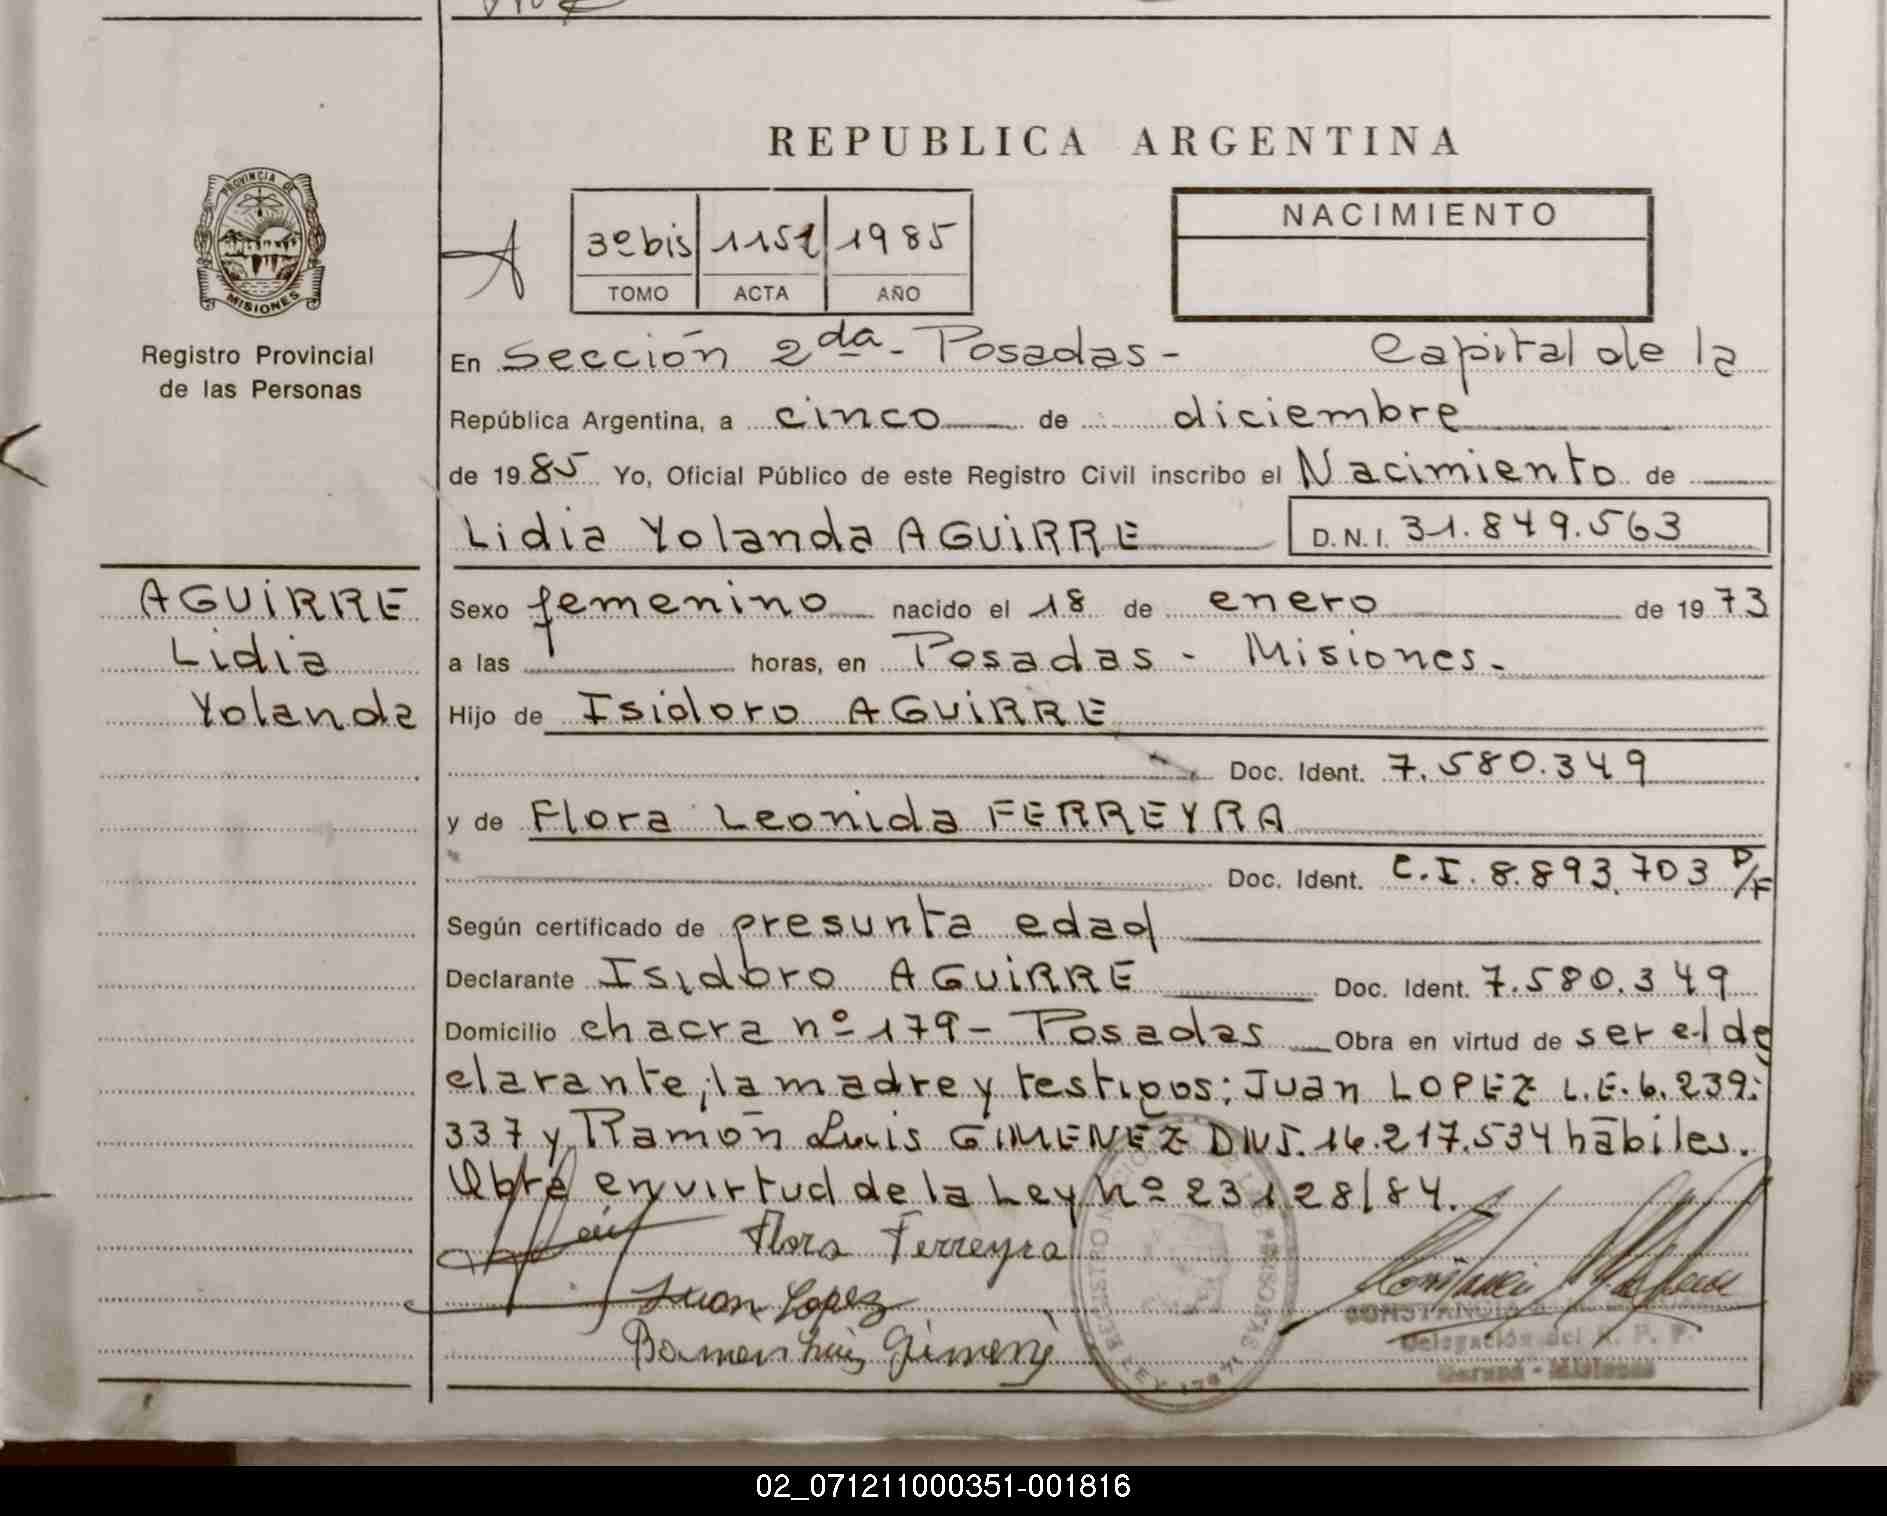 REPUBLICA ARGENTINA
PROVINCIA DE
MISIONES
Registro Provincial
de las Personas
3º bis 1151 1985
TOMO ACTA AÑO
NACIMIENTO
En Sección 2da - Posadas - Capital de la
República Argentina, a cinco de diciembre
de 1985 Yo, Oficial Público de este Registro Civil inscribo el Nacimiento de
Lidia Yolanda AGUIRRE D.N.I. 31.849.563
AGUIRRE
Lidia
Yolanda
Sexo femenino nacido el 18 de enero de 1973
a las horas, en Posadas - Misiones -
Hijo de Isidoro AGUIRRE
Doc. Ident. 7.580.349
y de Flora Leonida FERREYRA
Doc. Ident. C.I. 8.893.703 P/F
Según certificado de presunta edad
Declarante Isidoro AGUIRRE Doc. Ident. 7.580.349
Domicilio chacra nº 179 - Posadas Obra en virtud de ser el de
clarante; la madre y testigos: Juan LOPEZ L.E. 6.239.
337 y Ramón Luis GIMENEZ DNI. 16.217.534 hábiles.
Obra en virtud de la Ley nº 23128/84.
Flora Ferreyra
Juan Lopez
Ramon Luis Gimenez
Delegación del R. P. P.
02_071211000351-001816